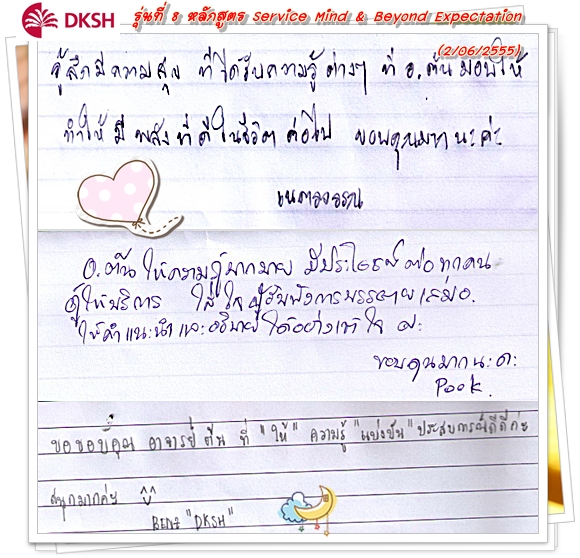 DKSH รุ่นที่ 8 หลักสูตร Service Mind & Beyond Expectation
(2/06/2555)
รู้สึกมีความสุข ที่ได้รับความรู้ต่างๆ ที่ อ.ต้น มอบให้
ทำให้มีพลังที่ดีในชีวิตต่อไป ขอบคุณมากนะค่ะ
อ.ต้น ให้ความรู้มากมาย มีประโยชน์ต่อทุกคน
ผู้ให้บริการ ใส่ใจผู้รับฟังการบรรยายเสมอ.
ให้คำแนะนำและอธิบายได้อย่างเข้าใจ คะ
ขอบคุณมากนะคะ
Pook.
ขอขอบคุณ อาจารย์ต้น ที่ "ให้" ความรู้ "แบ่งปัน" ประสบการณ์ดีดีค่ะ
สนุกมากค่ะ ^^
"DKSH"